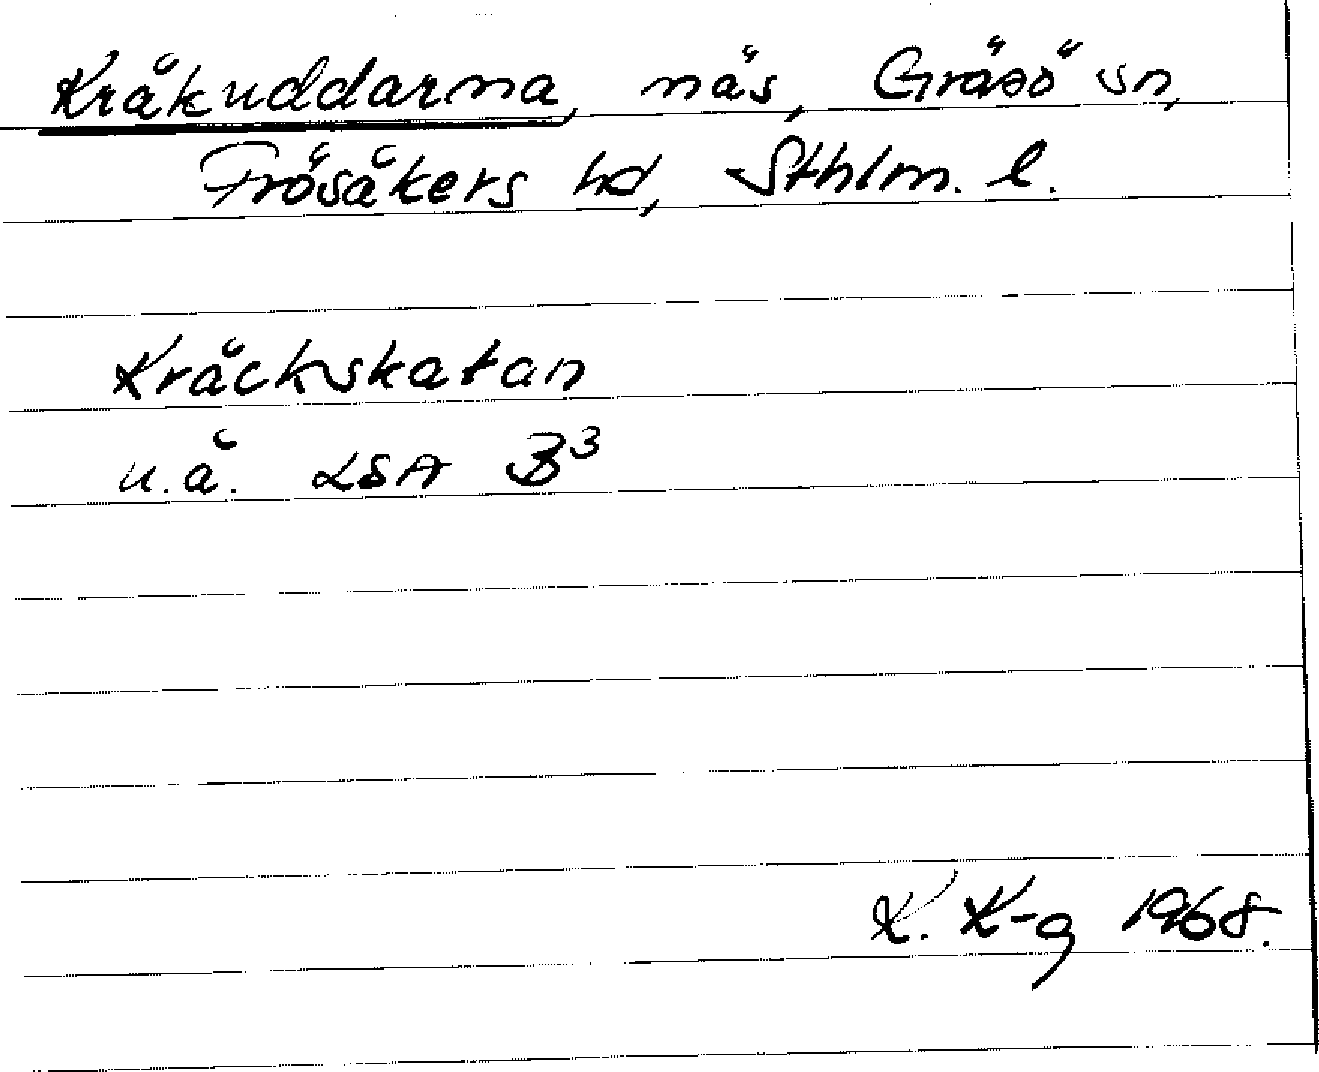 Kråkuddarna, näs, Gräsö sn,
Frösåkers hd, Sthlm. l.
Kråckskatan
u.å. LSA B³
K. K-g 1968.